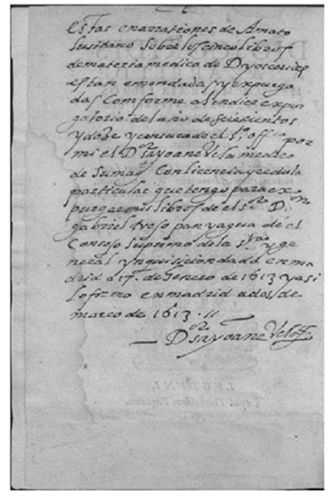 Estas enarrationes de Amato
Lusitano sobre los cinco libros
de materia medica de Dyoscorides
estan emendadas y expurga
das comforme al indice expur
gatorio del año de seiscientos
y doze y censura de el Sto officio por
mi el Dor
medico
de su magd con licencia y cedula
particular que tengo para ex
purgar mis libros de el sor Don
gabriel trejo paniagua de el
Consejo supremo de la sta y ge
neral ynquisicion dada en ma
drid a 17 de Genero de 1613 y asi
lo firmo en madrid a dos de
março de 1613